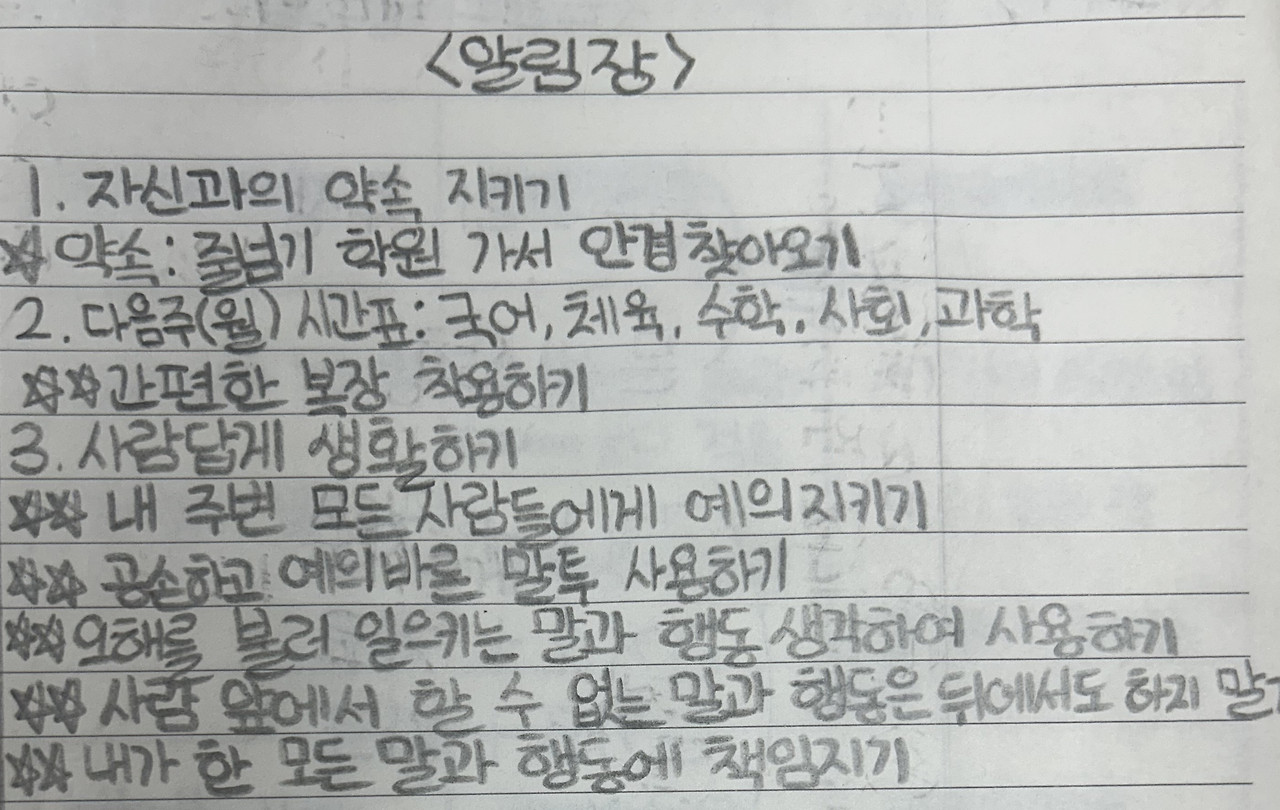 <알림장>
1. 자신과의 약속 지키기
☆ 약속: 줄넘기 학원 가서 안경찾아오기
2. 다음주(월) 시간표: 국어, 체육, 수학, 사회, 과학
☆☆간편한 복장 착용하기
3. 사람답게 생활하기
☆☆ 내 주변 모든 사람들에게 예의지키기
☆☆ 공손하고 예의바른 말투 사용하기
☆☆오해를 불러 일으키는 말과 행동 생각하여 사용하기
☆☆ 사람 앞에서 할 수 없는 말과 행동은 뒤에서도 하지 말
☆☆ 내가 한 모든 말과 행동에 책임지기